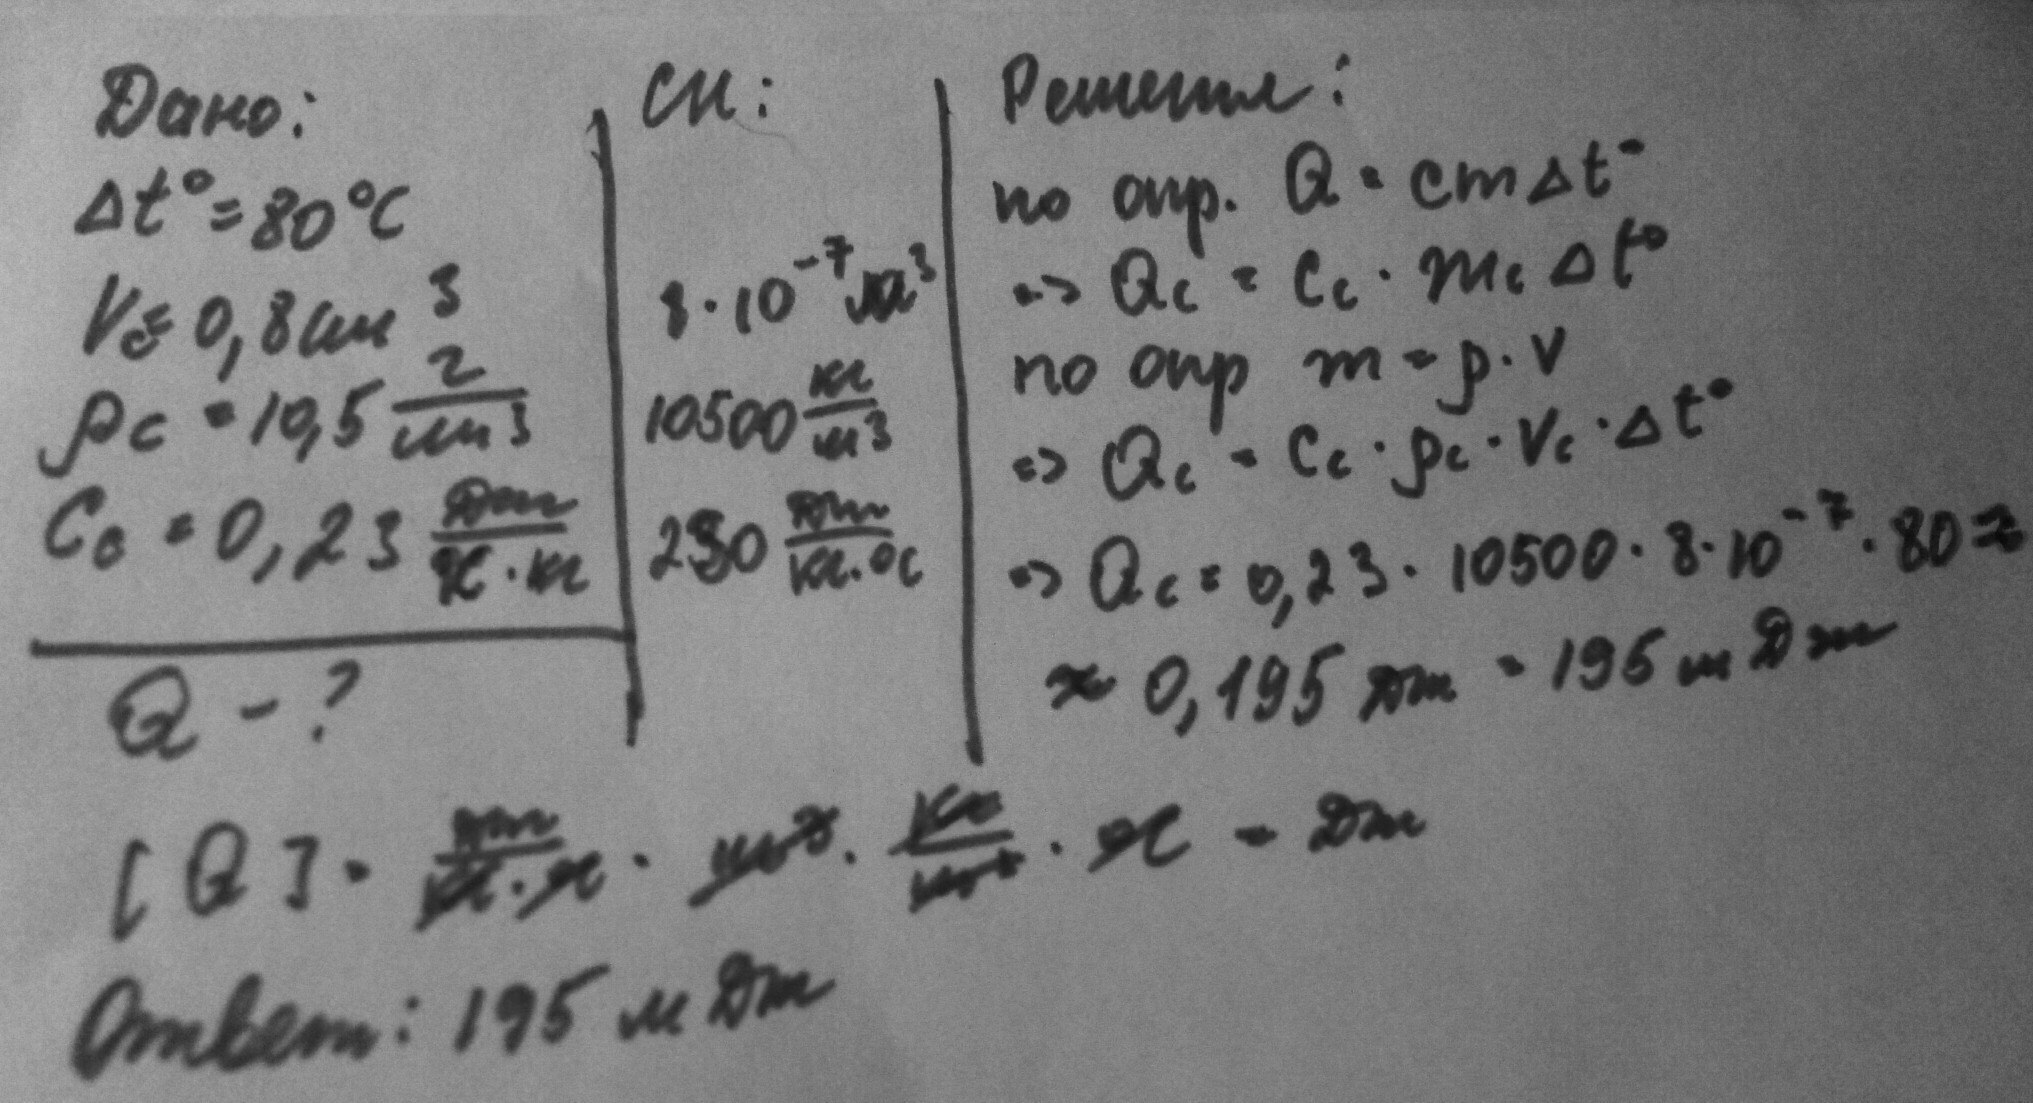 Дано:
Δt°=80°C
Vc=0,8см³
ρc=10,5 г/см³
Cc=0,23 Дж/°C·кг
Q-?
СИ:
8·10⁻⁷м³
10500 кг/м³
230 Дж/кг·°C
Решение:
по опр. Q=cmΔt°
=> Qc=Cc·mcΔt°
по опр m=ρ·V
=> Qc=Cc·ρc·Vc·Δt°
=> Qc=0,23·10500·8·10⁻⁷·80≈
≈0,195 Дж=195 мДж
[Q]=Дж/кг·°C·м³·кг/м³·°C=Дж
Ответ: 195 мДж